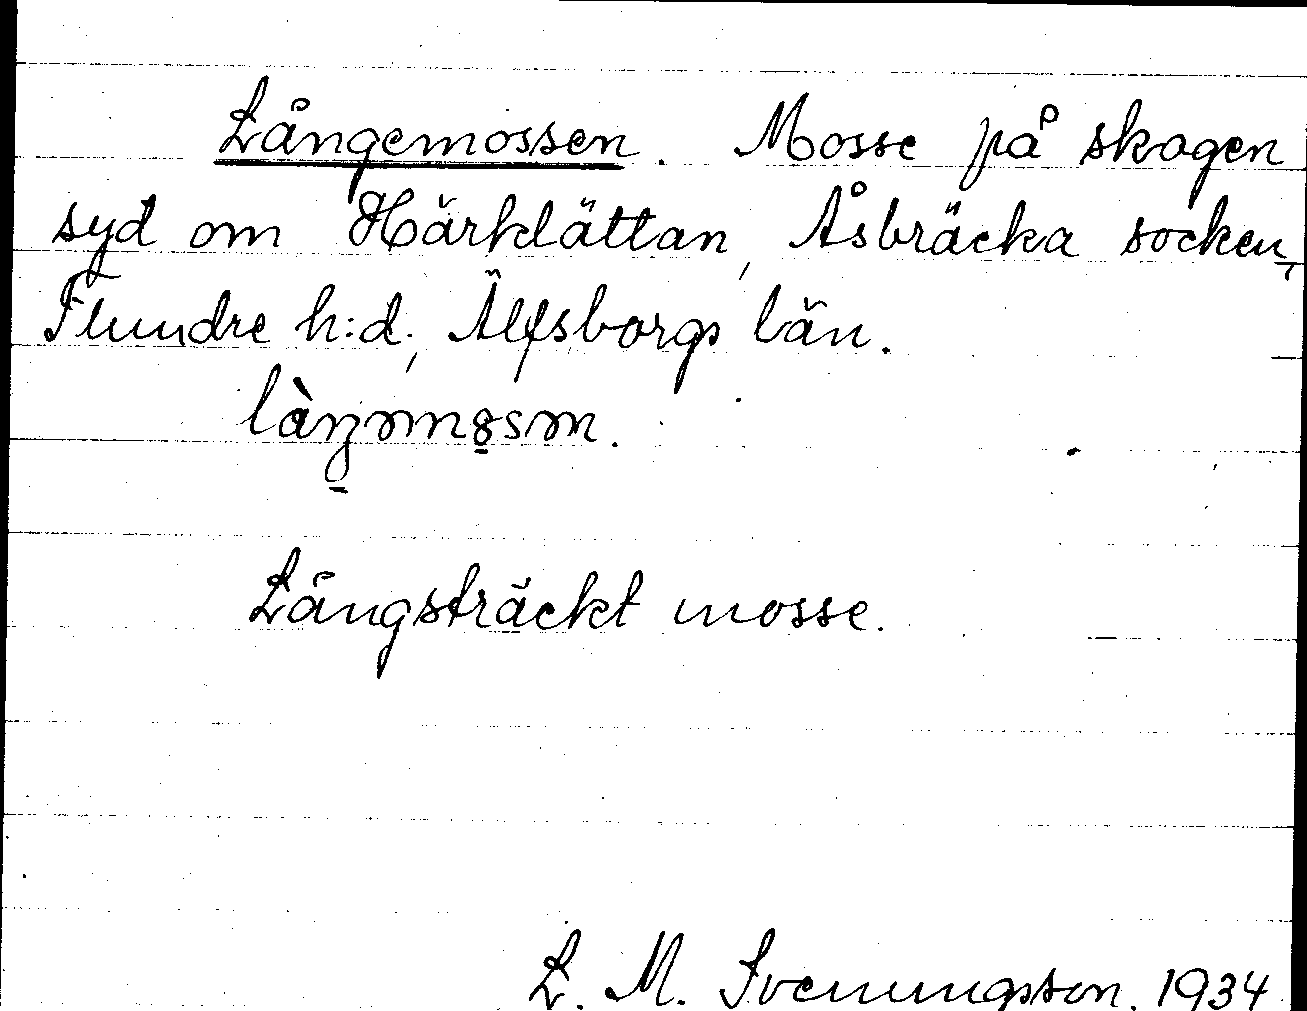 Långemossen. Mosse på skogen
syd om Härklättan, Åsbräcka socken,
Flundre h:d, Älfsborgs län.
Långsträckt mosse.
L. M. Svenungsson. 1934